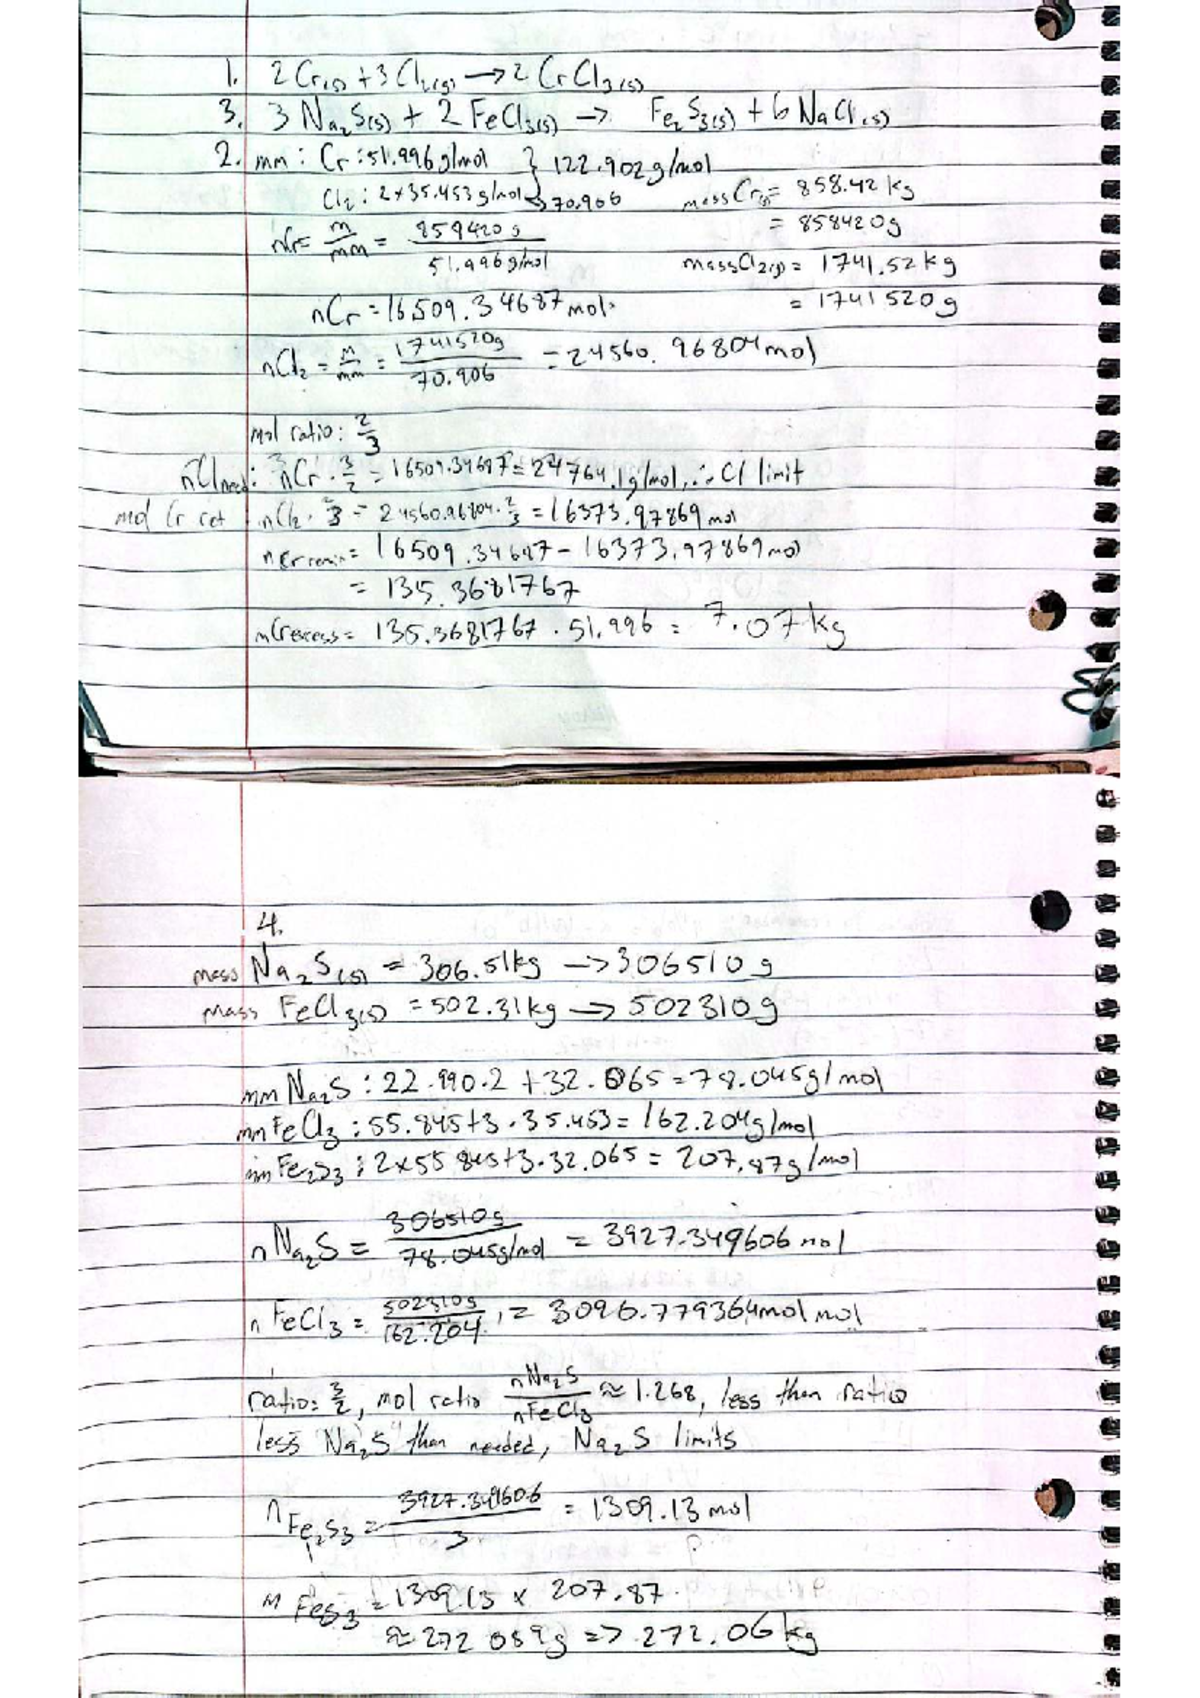 1. 2Cr(s) + 3Cl2(g) → 2CrCl3(s)
3. 3Na2S(s) + 2FeCl3(s) → Fe2S3(s) + 6NaCl(s)
2. mm: Cr: 51.996g/mol } 122.902g/mol
Cl2: 2×35.453g/mol → 70.906
massCr(s) = 858.42 kg
= 858420g
nCr = m/mm = 858420g/51.996g/mol
massCl2(g) = 1741.52kg
= 1741520g
nCr = 16509.34687mol
nCl2 = m/mm = 1741520g/70.906 = 24560.96804mol
mol ratio: 2/3
nCl need: nCr · 3/2 = 16509.34687 = 24764.1g/mol, ∴ Cl limit
mol Cr nCl2 · 2/3 = 24560.96804 · 2/3 = 16373.97869mol
nCr remin = 16509.34687 − 16373.97869mol
= 135.3681767
mCrexcess = 135.3681767 · 51.996 = 7.07kg
4.
mass Na2S(s) = 306.51kg → 306510g
mass FeCl3(s) = 502.31kg → 502310g
mm Na2S: 22.990·2 + 32.065 = 78.045g/mol
mm FeCl3: 55.845+3·35.453 = 162.204g/mol
mm Fe2S3: 2×55.845+3·32.065 = 207.87g/mol
nNa2S = 306510g/78.045g/mol = 3927.349606mol
nFeCl3 = 502310g/162.204 = 3096.779364mol mol
ratio: 3/2, mol ratio nNa2S/nFeCl3 ≈ 1.268, less than ratio
less "Na2S" than needed, Na2S limits
nFe2S3 = 3927.349606/3 = 1309.13mol
m FeS3 = 1309.13 × 207.87
≈ 272 089g => 272.06kg